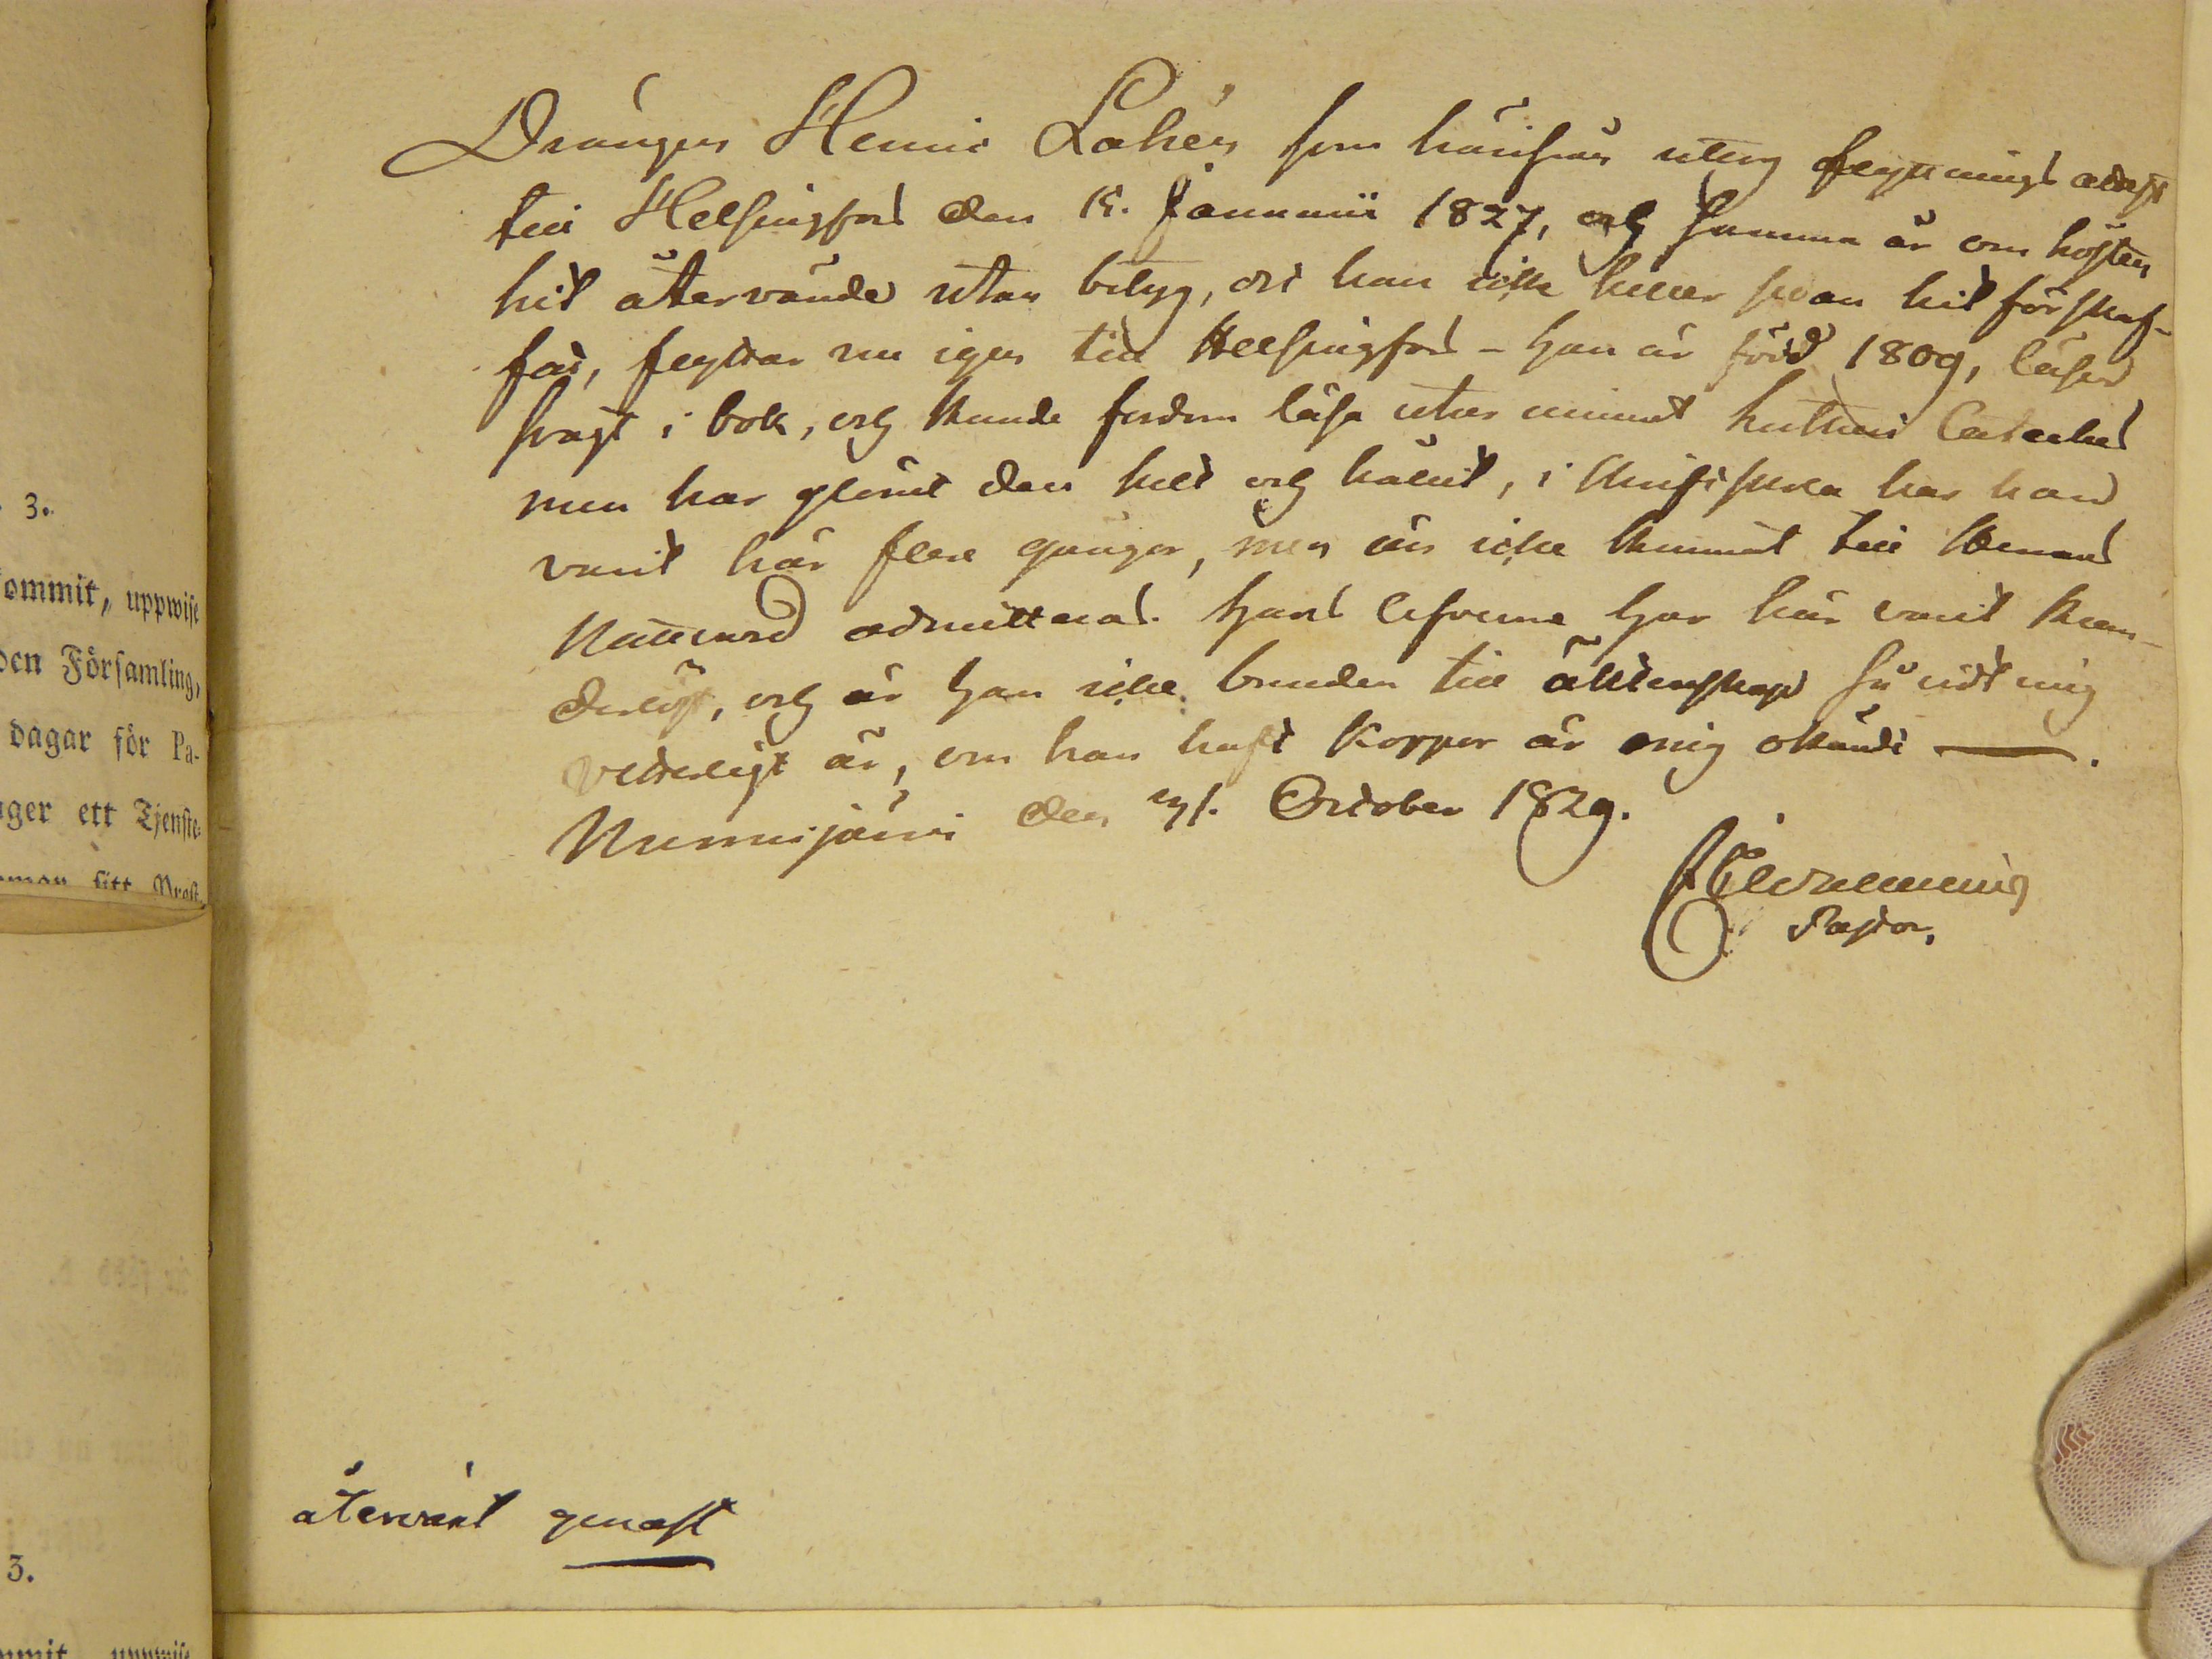 3.
ommit, uppwise
den Församling,
dagar för Pa-
ager ett Tjenste-
sitt Prest
Drängen Henric Lohén som härifrån uttog flyttnings attest
till Helsingfors den 15. Januarii 1827, och samma år om hösten
hit återvände utan betyg, ett han icke heller sedan hit förskaf-
fat, flyttar nu igen till Helsingfors - Han är född 1809, läser
svagt i bok, och kunde fordom läsa utur minnet Lutheri Cateches
men har glömt den helt och hållit, i Skriftskola har han
varit här flere gånger, men än icke kommit till Herrans
Nattvard admitteras. Hans lefverne har här varit klan-
derligt, och är han icke bunden till äktenskap så vidt mig
vetterligt är, om han haft Koppor är mig okändt.
Nummijärvi den 31. October 1829.
Pastor.
återvändt genast
3.
ommit uppwise